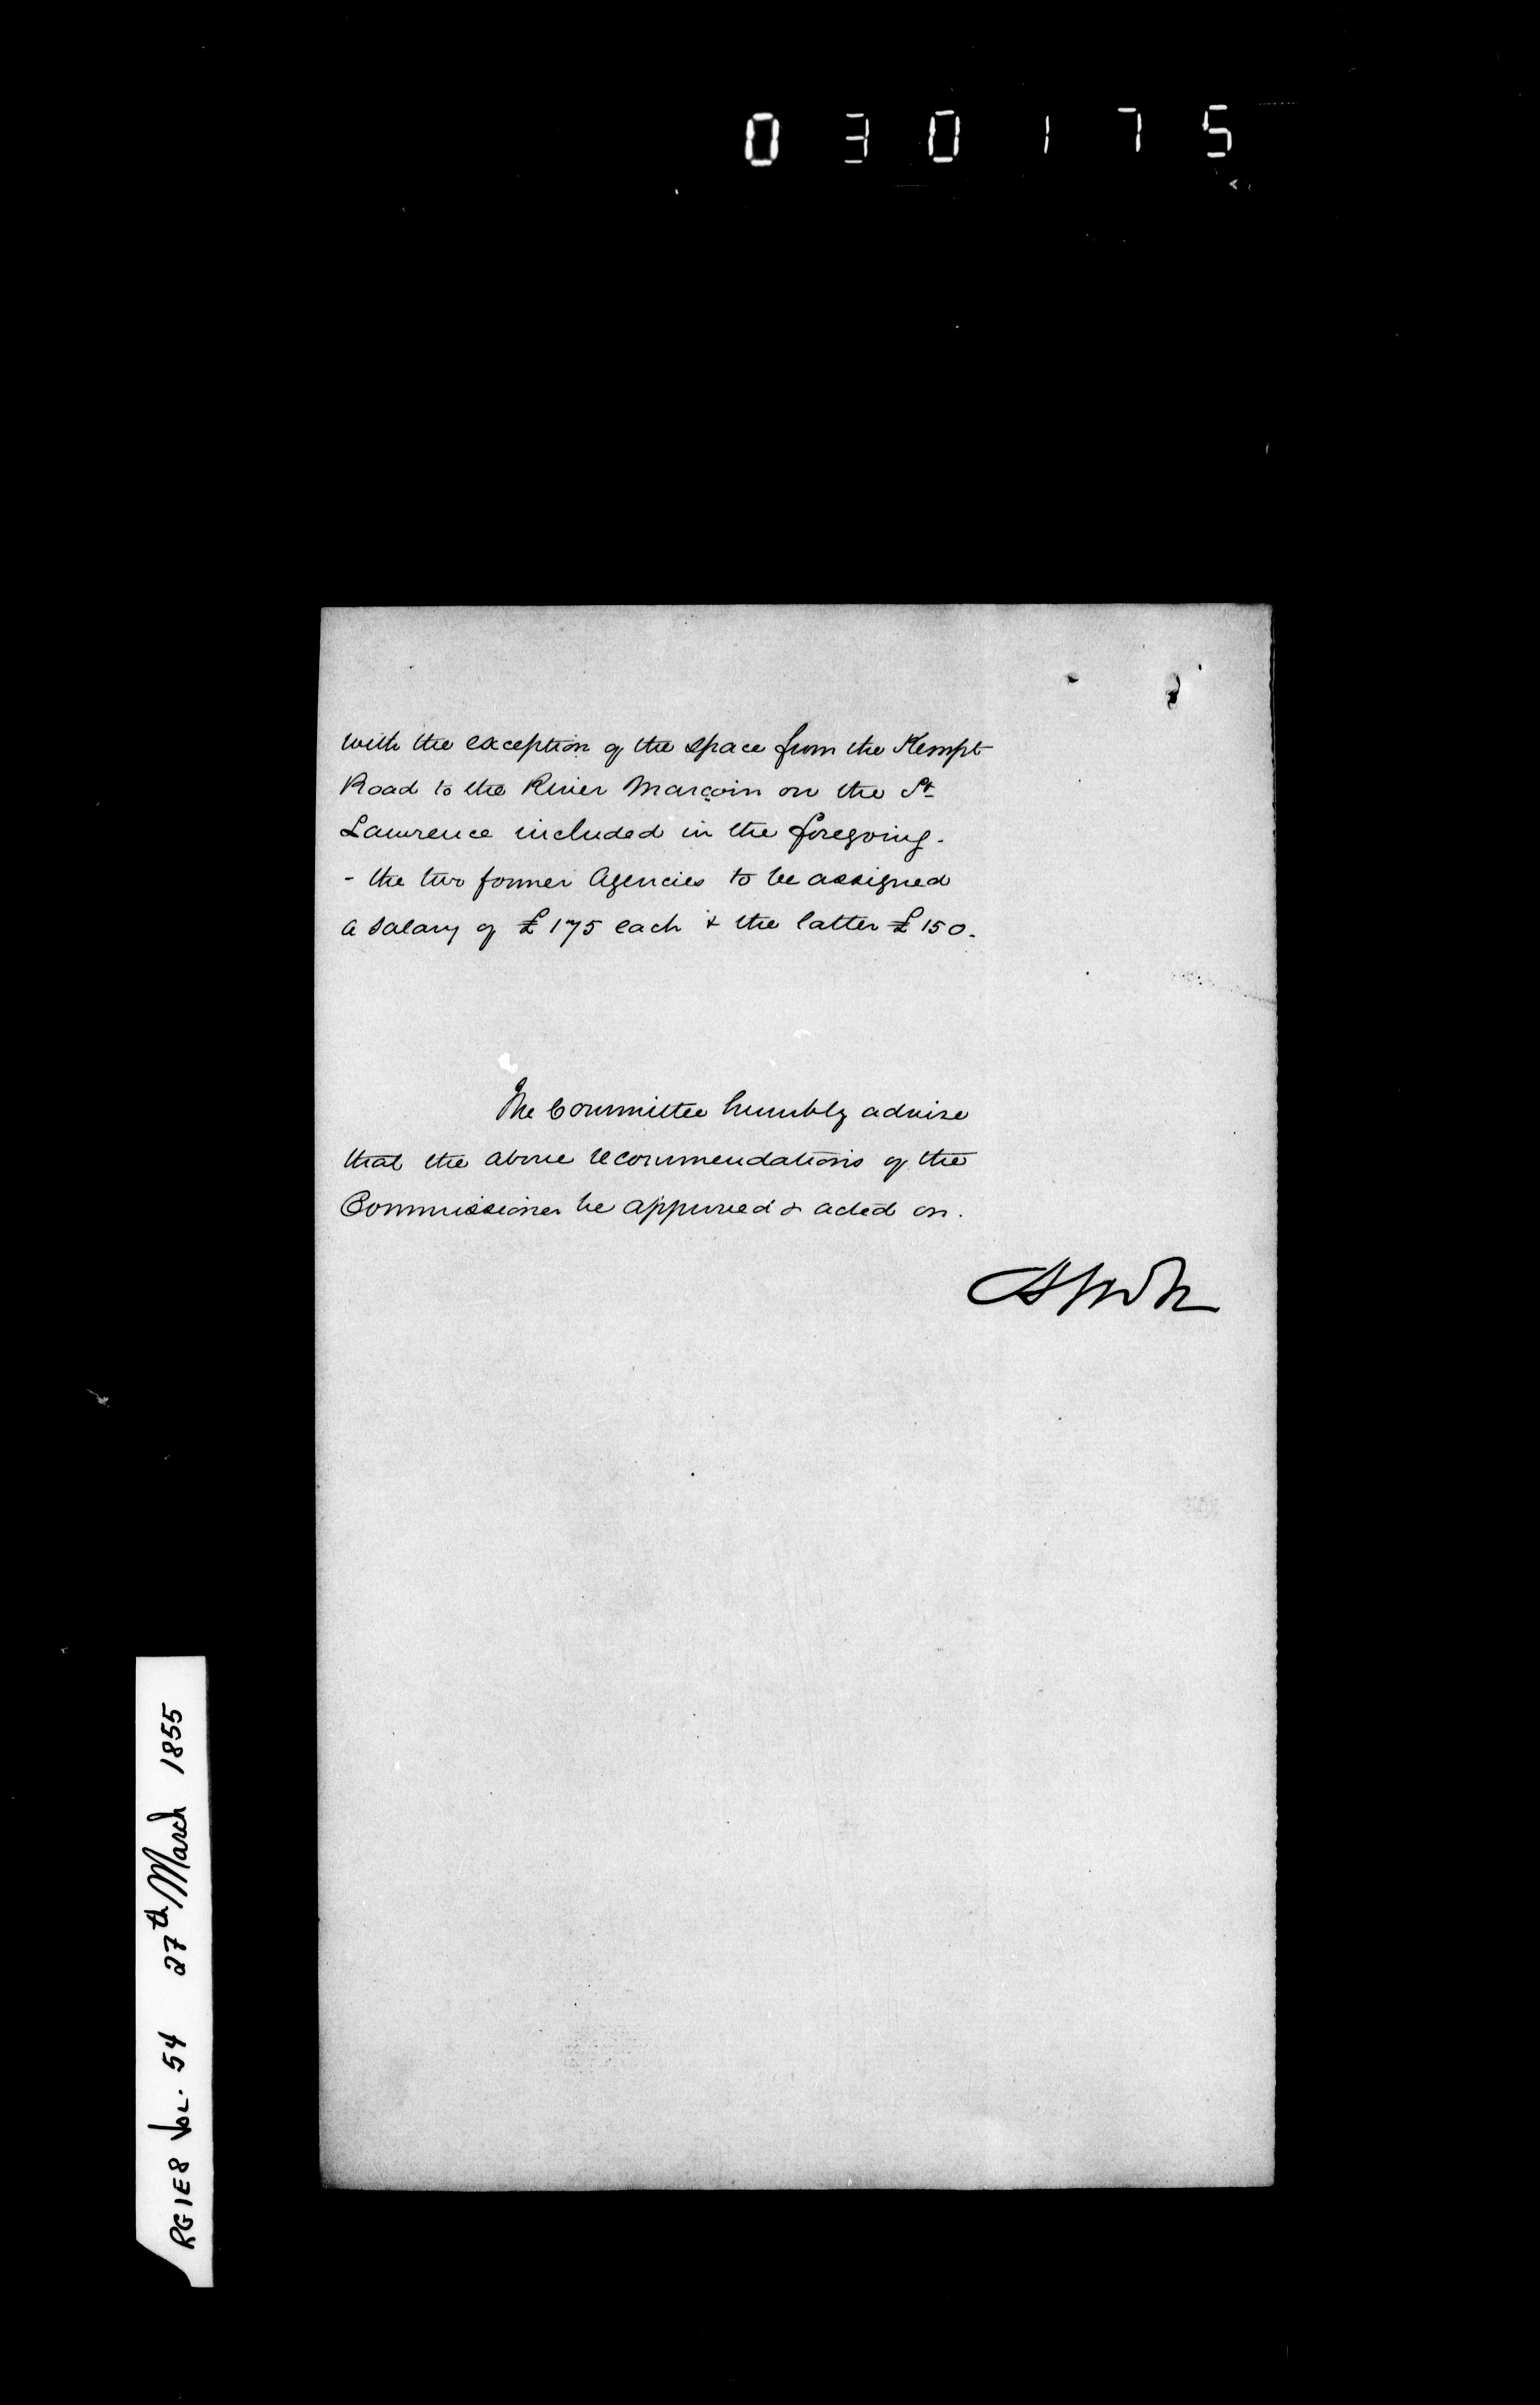 030175
with the exception of the space from the Kempt
Road to the River Marçoin on the St
Lawrence included in the foregoing.
- the two former Agencies to be assigned
a salary of £175 each & the latter £150.
The Committee humbly advise
that the above recommendations of the
Commissioner be approved & acted on.
RG1E8 Vol. 54 27th March 1855